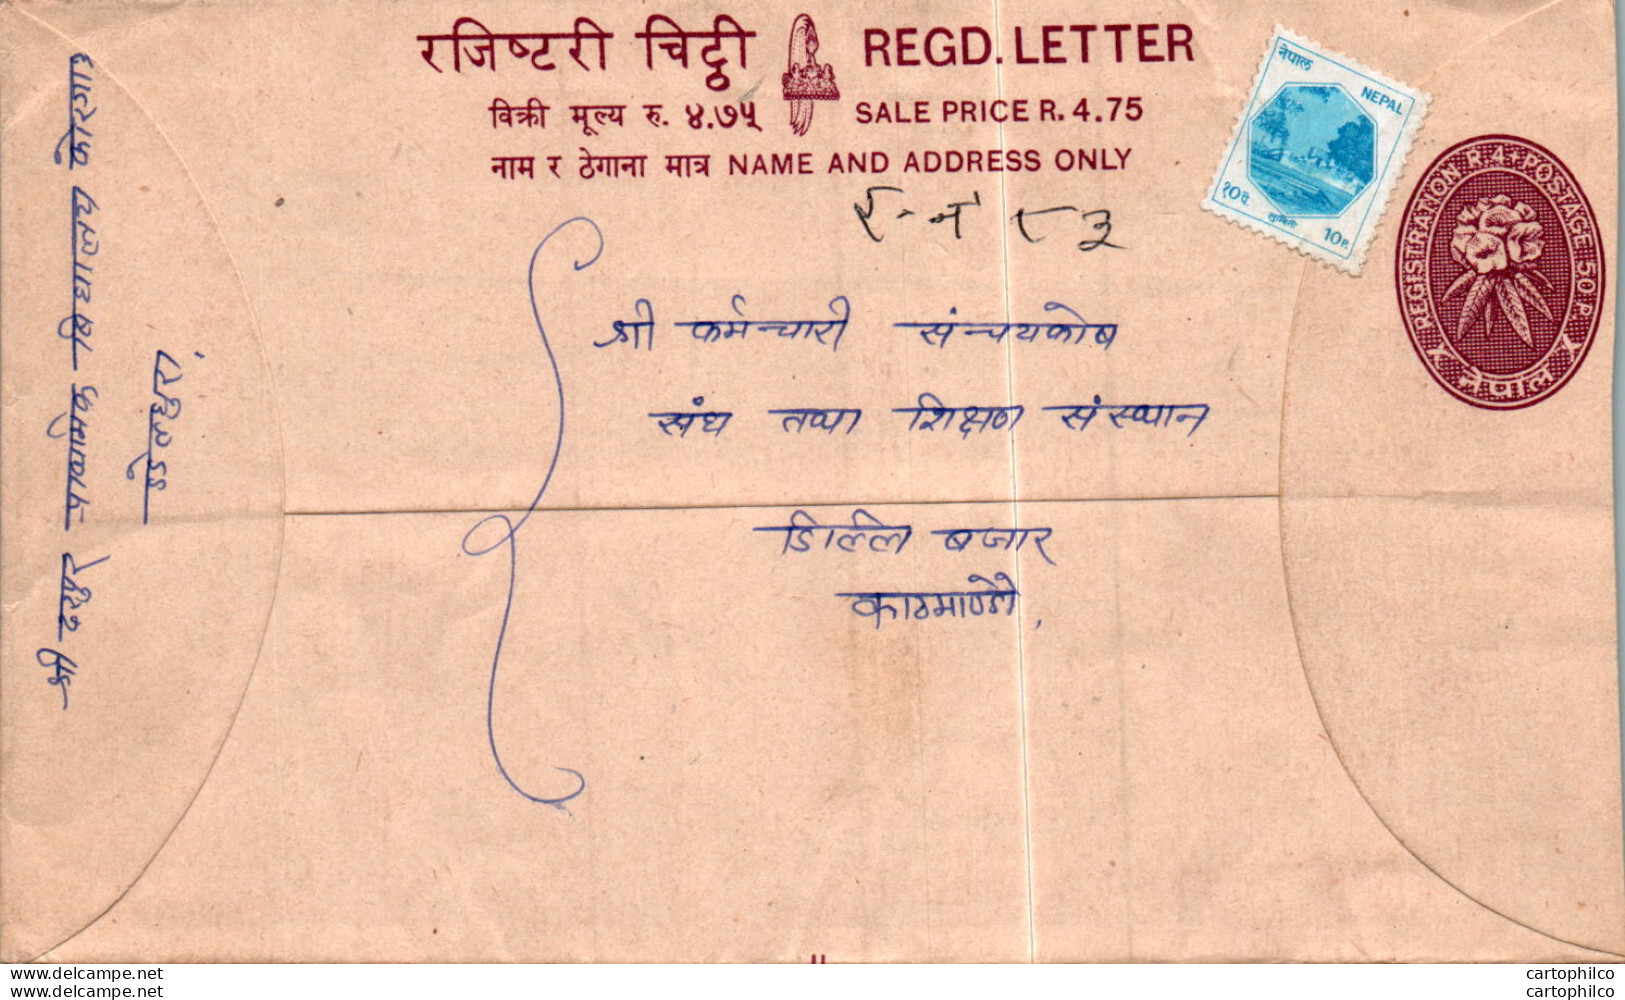 रजिष्टरी चिठ्ठी REGD. LETTER
विक्री मूल्य रु. ४.७५ SALE PRICE R. 4.75
नाम र ठेगाना मात्र NAME AND ADDRESS ONLY
नेपाल
NEPAL
१० पै.
लुम्बिनी
10 P.
REGISTRATION R. 4 POSTAGE 50 P.
नेपाल
र. नं १८३
श्री कर्मचारी संन्चयकोष
संघ तथा शिक्षण संस्थान
डिल्लि बजार
काठमाण्डौ,
डडेलधुरा
delcampe.net
delcampe.net
cartophilco
cartophilco